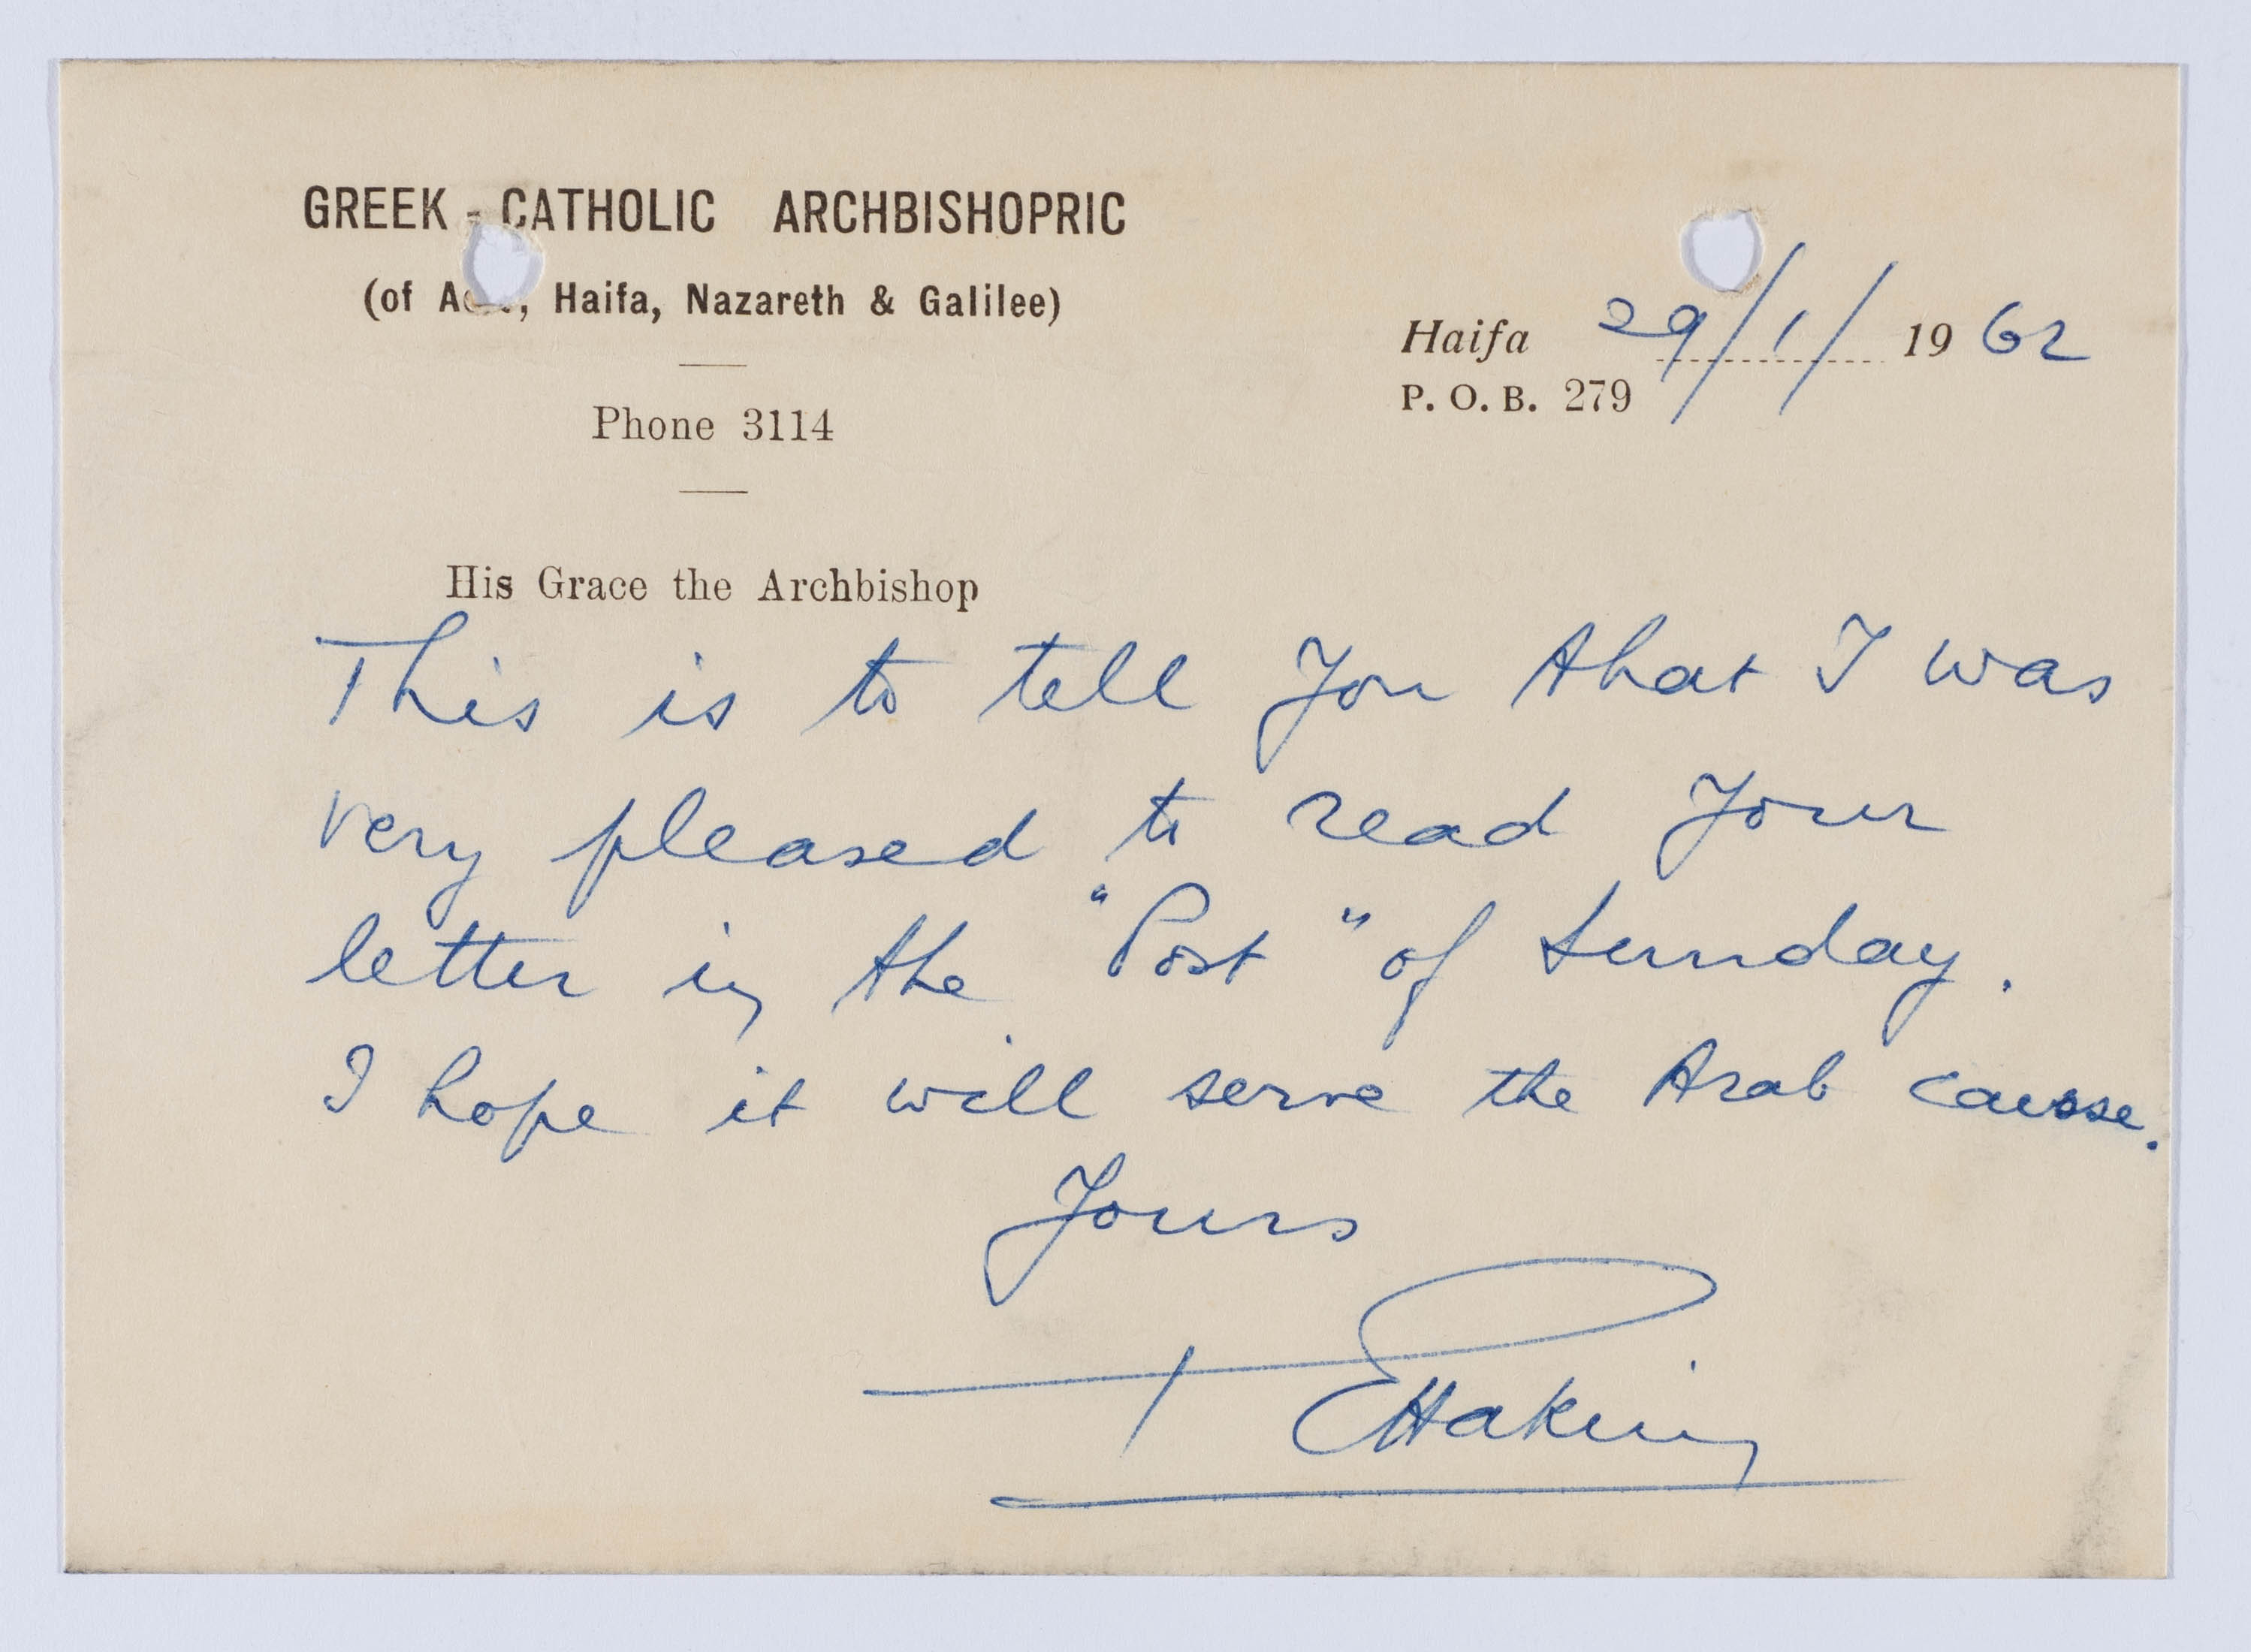 GREEK - CATHOLIC ARCHBISHOPRIC
(of Haifa, Nazareth & Galilee)
Phone 3114
Haifa 29/1/1962
P. O. B. 279
His Grace the Archbishop
This is to tell you that I was
very pleased to read your
letter in the "Post" of Sunday.
I hope it will serve the Arab cause.
Yours
+ Hakim